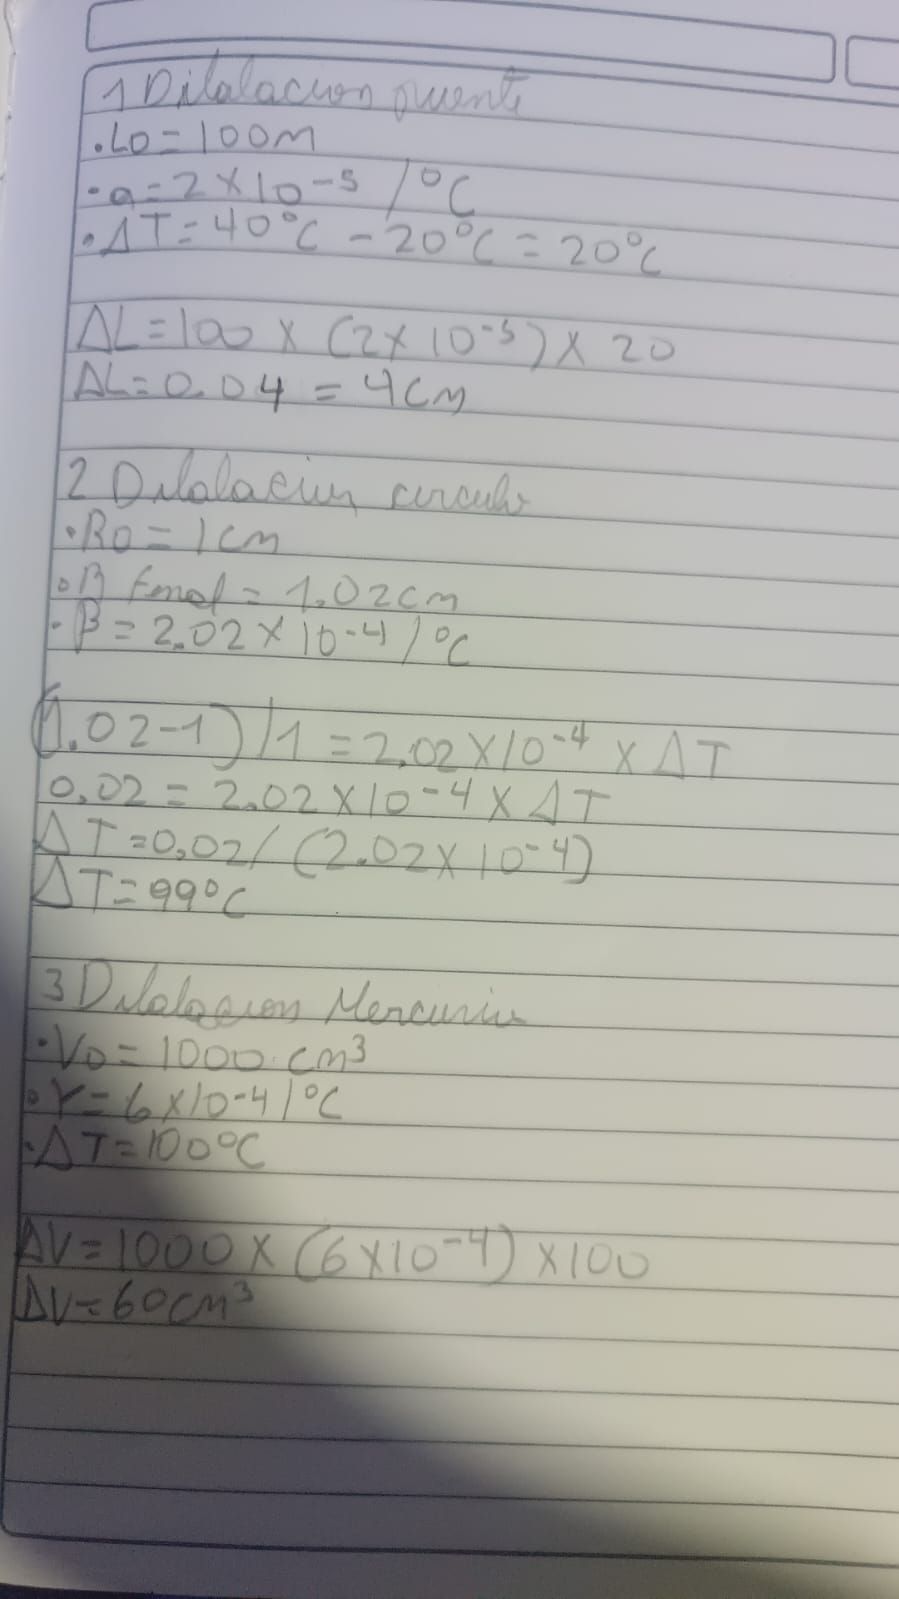 1 Dilatacion puente
• Lo = 100M
• a = 2 x 10-5 / °C
• ΔT = 40°C - 20°C = 20°C
ΔL = 100 x (2 x 10-5) x 20
ΔL = 0.04 = 4cm
2 Dilatacion circulo
• Ro = 1cm
• R Final = 1.02cm
• β = 2.02 x 10-4 / °C
(1.02 - 1) / 1 = 2.02 x 10-4 x ΔT
0,02 = 2.02 x 10-4 x ΔT
ΔT = 0,02 / (2.02 x 10-4)
ΔT = 99°C
3 Dilatacion Mercurio
• Vo = 1000 cm3
• γ = 6 x 10-4 / °C
• ΔT = 100°C
ΔV = 1000 x (6 x 10-4) x 100
ΔV = 60cm3